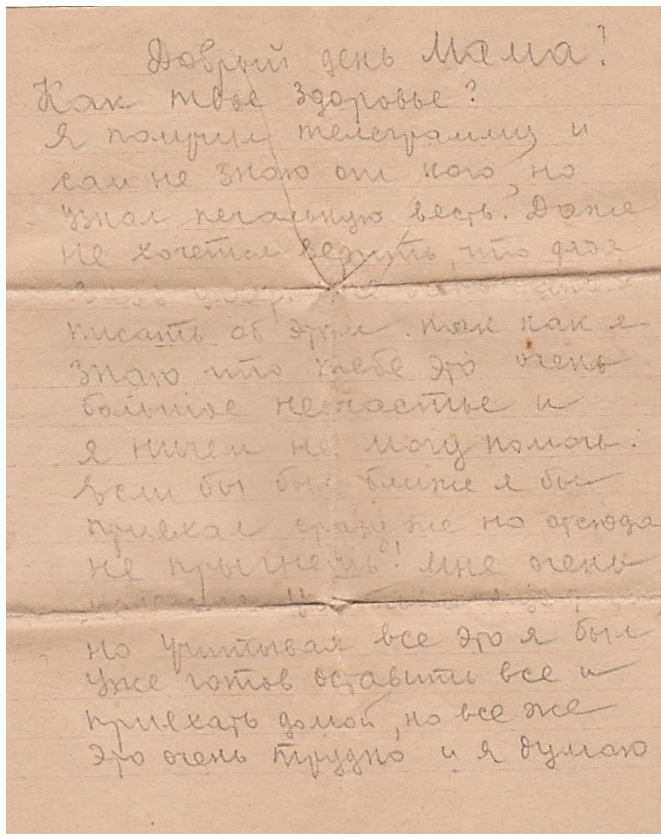 Добрый день Мама!
Как твое здоровье?
Я получил телеграмму и
сам не знаю от кого, но
узнал печальную весть. Даже
не хочется верить, что дядя
писать об этом. так как я
знаю что тебе это очень
большое несчастье и
я ничем не могу помочь.
Если бы был ближе я бы
приехал сразу же но отсюда
не прыгнешь! Мне очень
но учитывая все это я был
уже готов оставить все и
приехать домой, но все же
это очень трудно и я думаю